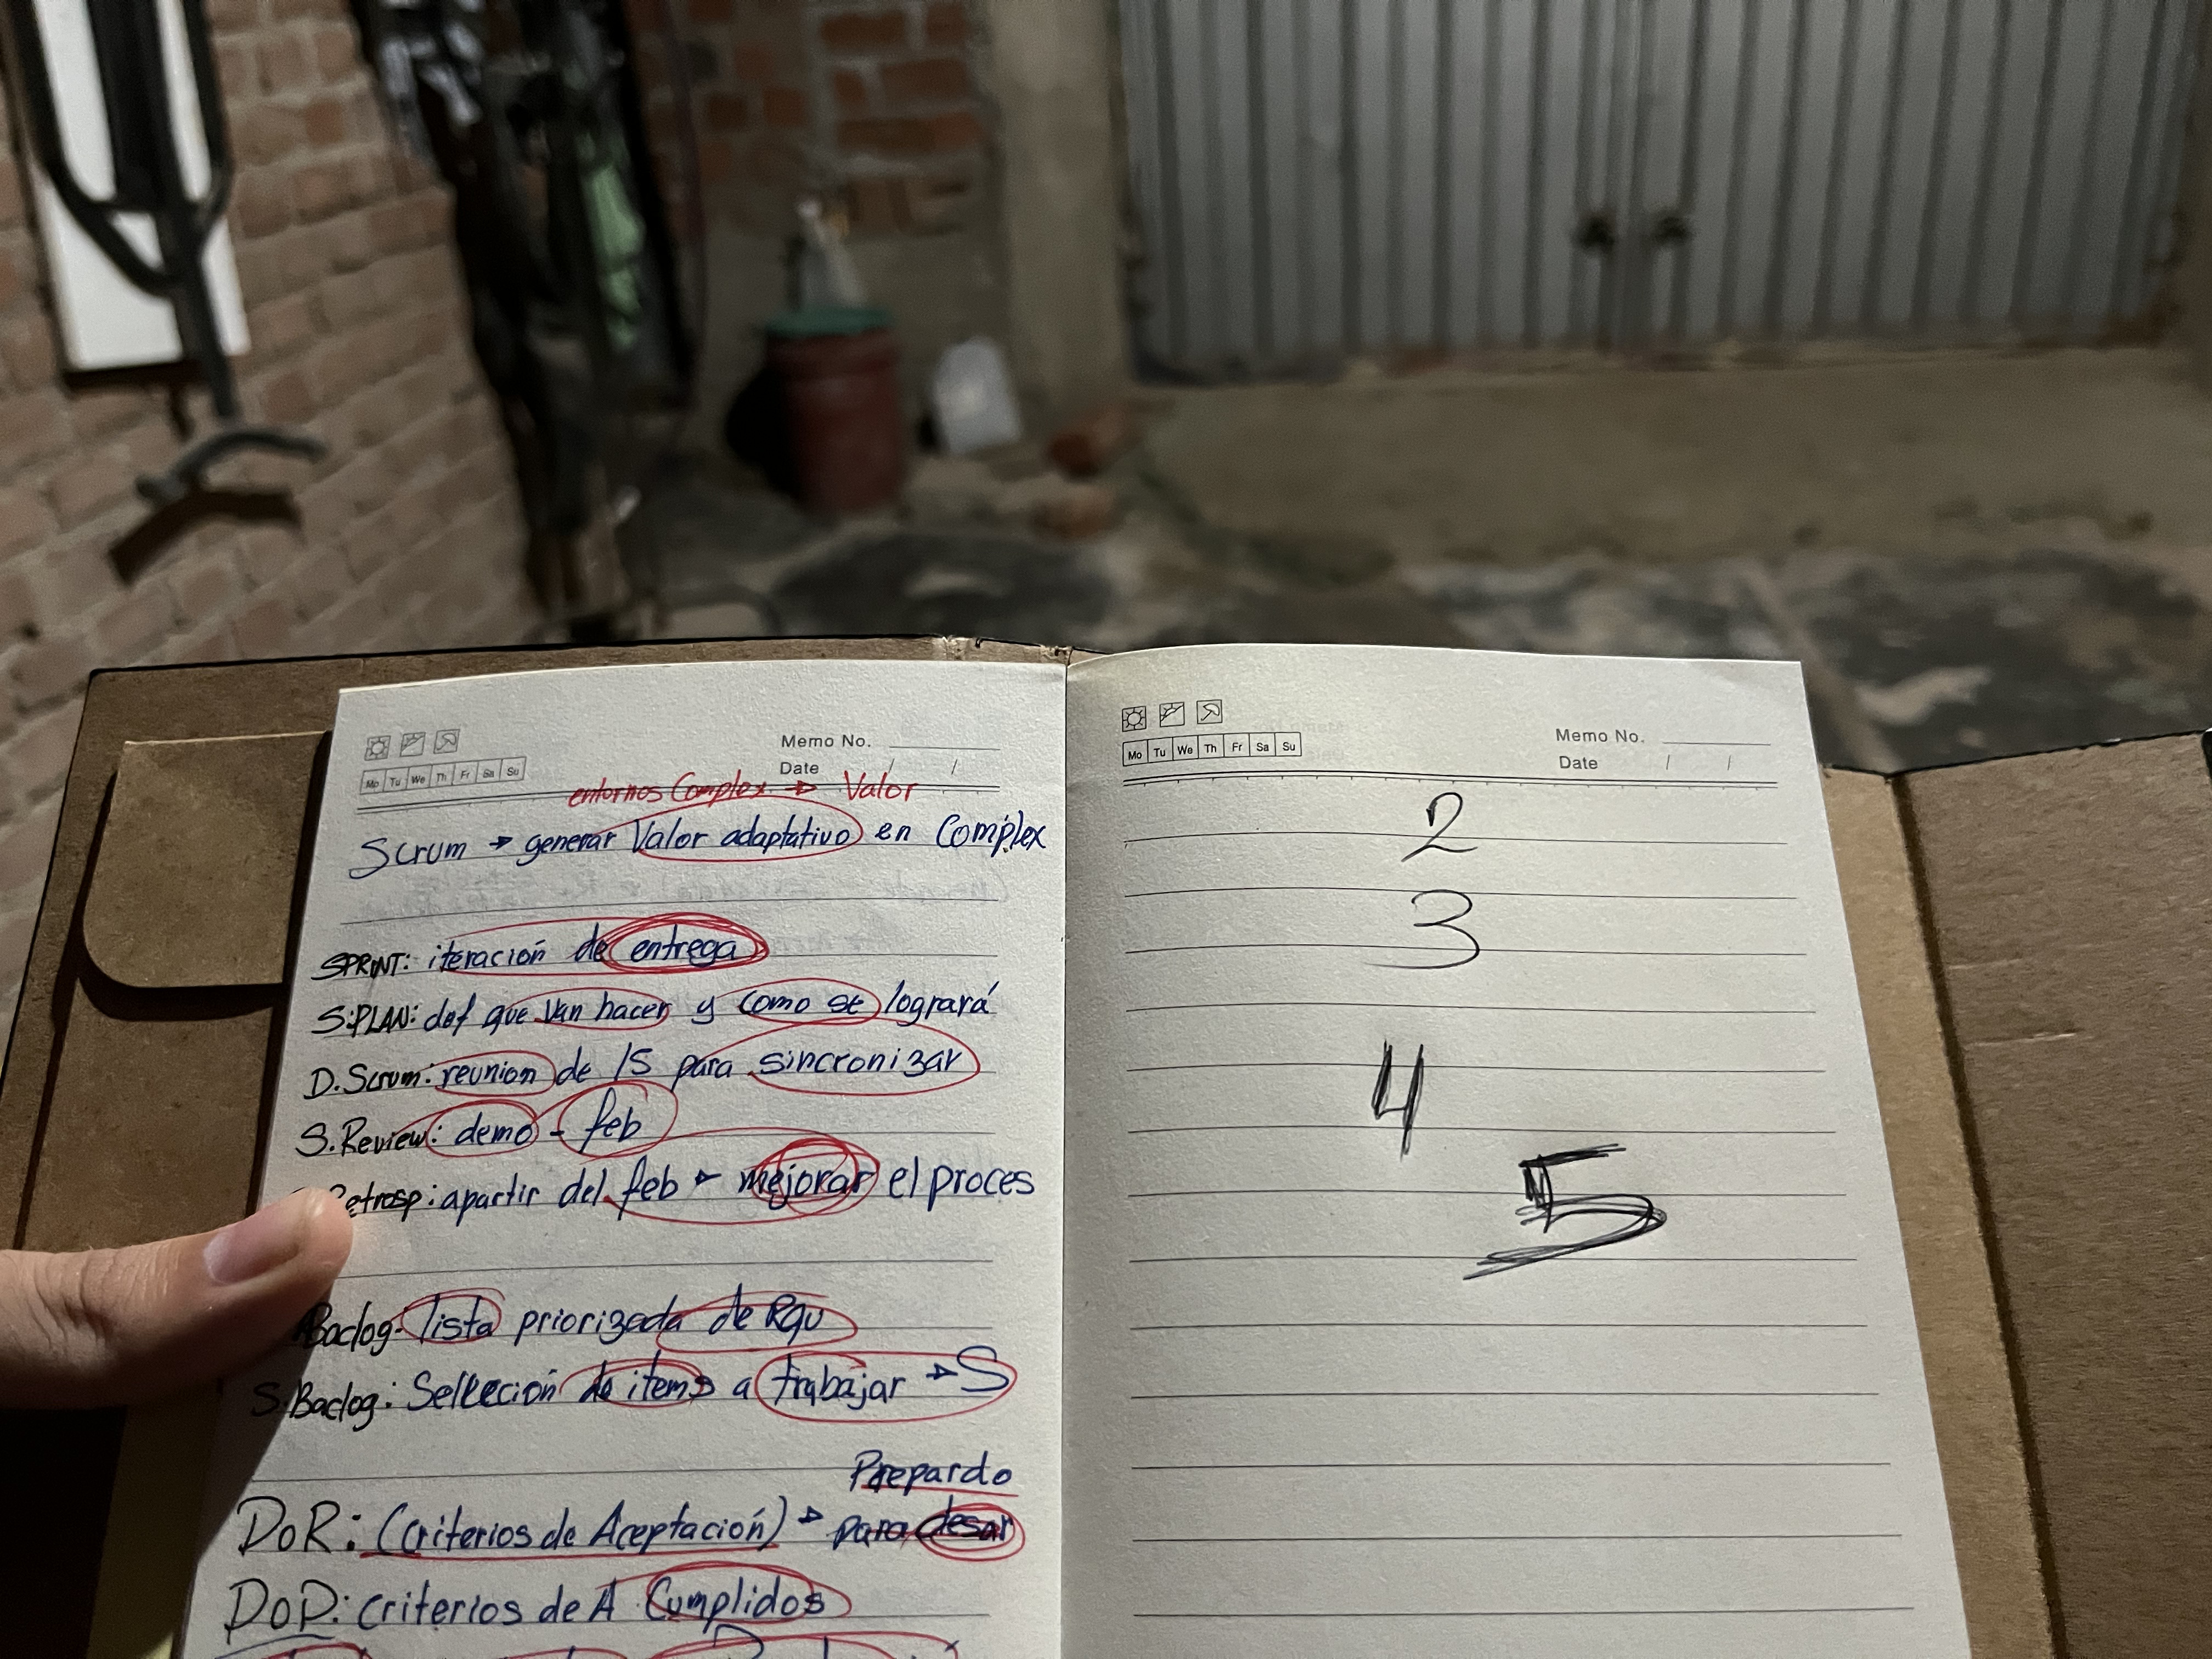 Memo No.
Mo Tu We Th Fr Sa Su
Date / /
entornos Complex. → Valor
Scrum → generar Valor adaptativo en Complex
SPRINT: iteración de entrega
S.PLAN: def que van hacer y como se logrará
D.Scrum: reunion de 15 para sincronizar
S.Review: demo - feb
Retrosp: apartir del feb → mejorar el proces
Baclog: lista priorizada de Rqu
S.Baclog: Sellección de items a trabajar → S
Prepardo
DoR: (Criterios de Aceptación) → para desar
DoD: criterios de A Cumplidos
Memo No.
Mo Tu We Th Fr Sa Su
Date / /
2
3
4
5